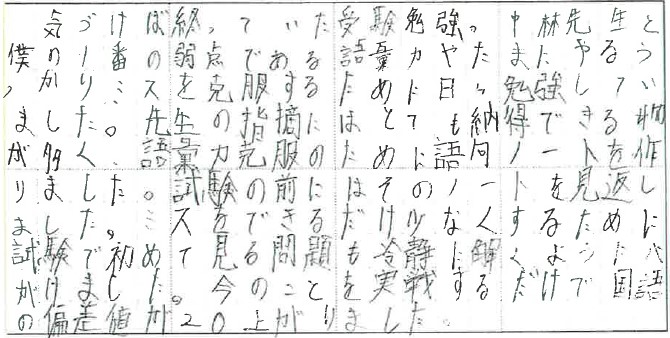 僕は気づけば終っていた受験勉強だった、中林先生と
僕の一番の弱点である語彙力や、たまにやるう
っかりミスを克服するために日々勉強してい
ました。先生の指摘にはとても納得できる物
が多く、語彙力克服のために語句ノートを作
りました。試験の前にはそのノートを見返し
ました。ミスをできるだけ少なくするために
試験で初めて見る問題も冷静に解くように心
がけました。今のことを実戦するだけで国語
の偏差値が20上がりました。